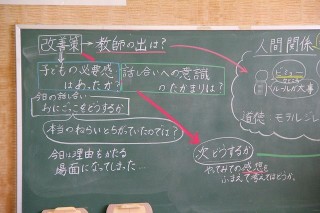 改善策→教師の出は?
人間関係
子どもの必要感
はあったか?
話し合いへの意識
のたかまりは?
今日の話し合い
おにごっこをどうするか
ルールが大事
本当のねらいとちがっていたのでは?
道徳
今日は理由をかたる
場面になってしまった…
次どうするか
やってみての感想を
ふまえて考えてはどうか。